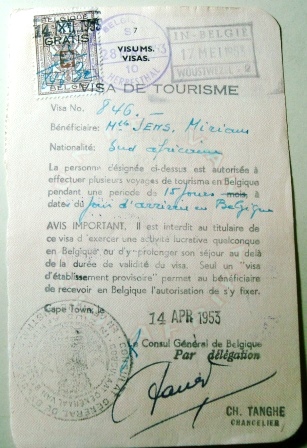 14 XII 1953
GRATIS
BELGIE
57
VISUMS.
VISAS.
10
HERBESTHAL
IN-BELGIE
17 MEI 1953
WUUSTWEZEL - 2
VISA DE TOURISME
Visa No. 846.
Bénéficiaire: Miriam
Nationalité: Sud africaine
La personne désignée ci-dessus est autorisée à
effectuer plusieurs voyages de tourisme en Belgique
pendant une période de 15 jours mois, à
dater du jour d'arrivée en Belgique
AVIS IMPORTANT. Il est interdit au titulaire de
ce visa d'exercer une activité lucrative quelconque
en Belgique ou d'y prolonger son séjour au delà
de la durée de validité du visa. Seul un "visa
d'établissement provisoire" permet au bénéficiaire
de recevoir en Belgique l'autorisation de s'y fixer.
Cape Town, le
14 APR 1953
Le Consul Général de Belgique
Par délégation
CONSULAT GENERAL DE
CH. TANGHE
CHANCELIER